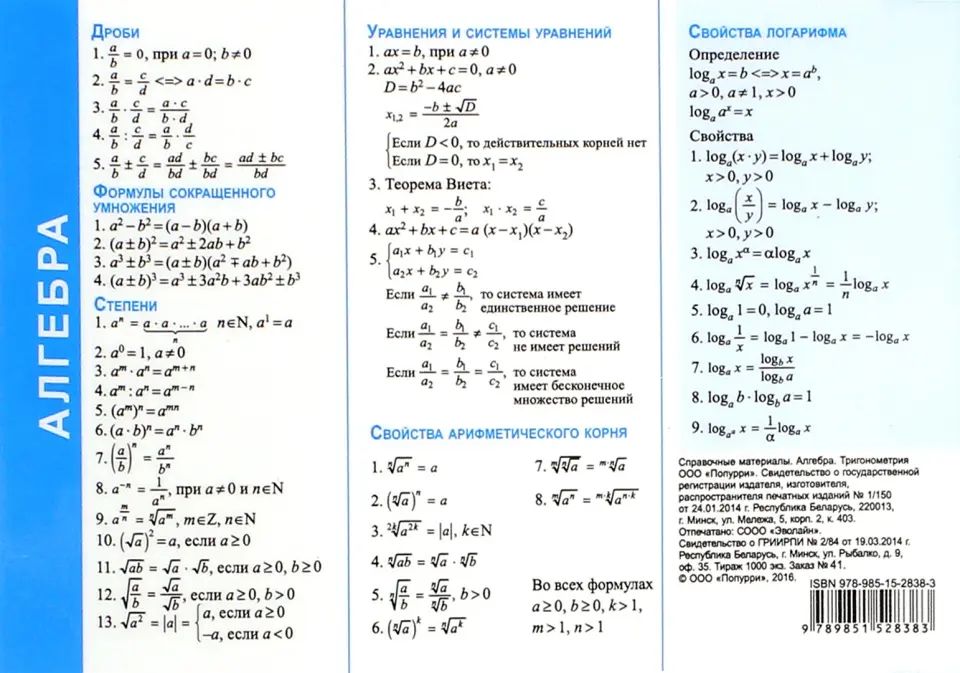 АЛГЕБРА
ДРОБИ
1. a/b = 0, при a = 0; b ≠ 0
2. a/b = c/d <=> a · d = b · c
3. a/b · c/d = a · c/b · d
4. a/b : c/d = a/b · d/c
5. a/b ± c/d = ad/bd ± bc/bd = ad ± bc/bd
ФОРМУЛЫ СОКРАЩЕННОГО
УМНОЖЕНИЯ
1. a² – b² = (a – b)(a + b)
2. (a ± b)² = a² ± 2ab + b²
3. a³ ± b³ = (a ± b)(a² ∓ ab + b²)
4. (a ± b)³ = a³ ± 3a²b + 3ab² ± b³
СТЕПЕНИ
1. aⁿ = a · a · ... · a n∈N, a¹ = a
n
2. a⁰ = 1, a ≠ 0
3. aᵐ · aⁿ = aᵐ⁺ⁿ
4. aᵐ : aⁿ = aᵐ⁻ⁿ
5. (aᵐ)ⁿ = aᵐⁿ
6. (a · b)ⁿ = aⁿ · bⁿ
7. (a/b)ⁿ = aⁿ/bⁿ
8. a⁻ⁿ = 1/aⁿ, при a ≠ 0 и n∈N
9. a^(m/n) = ⁿ√aᵐ, m∈Z, n∈N
10. (√a)² = a, если a ≥ 0
11. √ab = √a · √b, если a ≥ 0, b ≥ 0
12. √(a/b) = √a/√b, если a ≥ 0, b > 0
13. √a² = |a| = { a, если a ≥ 0
–a, если a < 0
УРАВНЕНИЯ И СИСТЕМЫ УРАВНЕНИЙ
1. ax = b, при a ≠ 0
2. ax² + bx + c = 0, a ≠ 0
D = b² – 4ac
x₁,₂ = –b ± √D/2a
{ Если D < 0, то действительных корней нет
Если D = 0, то x₁ = x₂
3. Теорема Виета:
x₁ + x₂ = –b/a; x₁ · x₂ = c/a
4. ax² + bx + c = a (x – x₁)(x – x₂)
5. { a₁x + b₁y = c₁
a₂x + b₂y = c₂
Если a₁/a₂ ≠ b₁/b₂, то система имеет
единственное решение
Если a₁/a₂ = b₁/b₂ ≠ c₁/c₂, то система
не имеет решений
Если a₁/a₂ = b₁/b₂ = c₁/c₂, то система
имеет бесконечное
множество решений
СВОЙСТВА АРИФМЕТИЧЕСКОГО КОРНЯ
1. ⁿ√aⁿ = a
2. (ⁿ√a)ⁿ = a
3. ²ᵏ√a²ᵏ = |a|, k∈N
4. ⁿ√ab = ⁿ√a · ⁿ√b
5. ⁿ√(a/b) = ⁿ√a/ⁿ√b, b > 0
6. (ⁿ√a)ᵏ = ⁿ√aᵏ
7. ᵐ√ⁿ√a = ᵐ·ⁿ√a
8. ᵐ√aⁿ = ᵐ·ᵏ√aⁿ·ᵏ
Во всех формулах
a ≥ 0, b ≥ 0, k > 1,
m > 1, n > 1
СВОЙСТВА ЛОГАРИФМА
Определение
logₐ x = b <=> x = aᵇ,
a > 0, a ≠ 1, x > 0
logₐ aˣ = x
Свойства
1. logₐ(x · y) = logₐ x + logₐ y;
x > 0, y > 0
2. logₐ(x/y) = logₐ x – logₐ y;
x > 0, y > 0
3. logₐ x^α = αlogₐ x
4. logₐ ⁿ√x = logₐ x^(1/n) = 1/n logₐ x
5. logₐ 1 = 0, logₐ a = 1
6. logₐ 1/x = logₐ 1 – logₐ x = –logₐ x
7. logₐ x = log_b x/log_b a
8. logₐ b · log_b a = 1
9. log_(a^α) x = 1/α logₐ x
Справочные материалы. Алгебра. Тригонометрия
ООО «Попурри». Свидетельство о государственной
регистрации издателя, изготовителя,
распространителя печатных изданий № 1/150
от 24.01.2014 г. Республика Беларусь, 220013,
г. Минск, ул. Мележа, 5, корп. 2, к. 403.
Отпечатано: СООО «Эволайн».
Свидетельство о ГРИИРПИ № 2/84 от 19.03.2014 г.
Республика Беларусь, г. Минск, ул. Рыбалко, д. 9,
оф. 35. Тираж 1000 экз. Заказ № 41.
© ООО «Попурри», 2016.
ISBN 978-985-15-2838-3
9 789851 528383